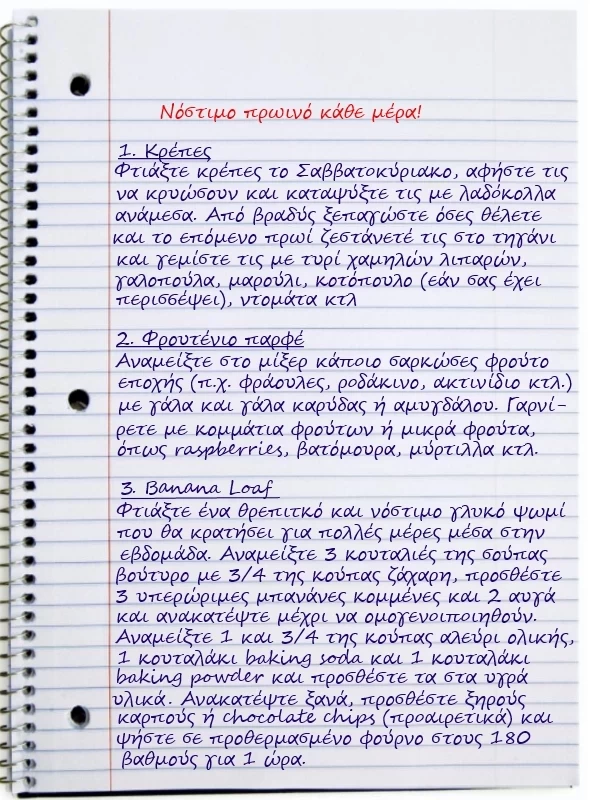 Νόστιμο πρωινό κάθε μέρα!
1. Κρέπες
Φτιάξτε κρέπες το Σαββατοκύριακο, αφήστε τις
να κρυώσουν και καταψύξτε τις με λαδόκολλα
ανάμεσα. Από βραδύς ξεπαγώστε όσες θέλετε
και το επόμενο πρωί ζεστάνετέ τις στο τηγάνι
και γεμίστε τις με τυρί χαμηλών λιπαρών,
γαλοπούλα, μαρούλι, κοτόπουλο (εάν σας έχει
περισσέψει), ντομάτα κτλ
2. Φρουτένιο παρφέ
Αναμείξτε στο μίξερ κάποιο σαρκώσες φρούτο
εποχής (π.χ. φράουλες, ροδάκινο, ακτινίδιο κτλ.)
με γάλα και γάλα καρύδας ή αμυγδάλου. Γαρνί-
ρετε με κομμάτια φρούτων ή μικρά φρούτα,
όπως raspberries, βατόμουρα, μύρτιλλα κτλ.
3. Banana Loaf
Φτιάξτε ένα θρεπιτκό και νόστιμο γλυκό ψωμί
που θα κρατήσει για πολλές μέρες μέσα στην
εβδομάδα. Αναμείξτε 3 κουταλιές της σούπας
βούτυρο με 3/4 της κούπας ζάχαρη, προσθέστε
3 υπερώριμες μπανάνες κομμένες και 2 αυγά
και ανακατέψτε μέχρι να ομογενοποιηθούν.
Αναμείξτε 1 και 3/4 της κούπας αλεύρι ολικής,
1 κουταλάκι baking soda και 1 κουταλάκι
baking powder και προσθέστε τα στα υγρά
υλικά. Ανακατέψτε ξανά, προσθέστε ξηρούς
καρπούς ή chocolate chips (προαιρετικά) και
ψήστε σε προθερμασμένο φούρνο στους 180
βαθμούς για 1 ώρα.